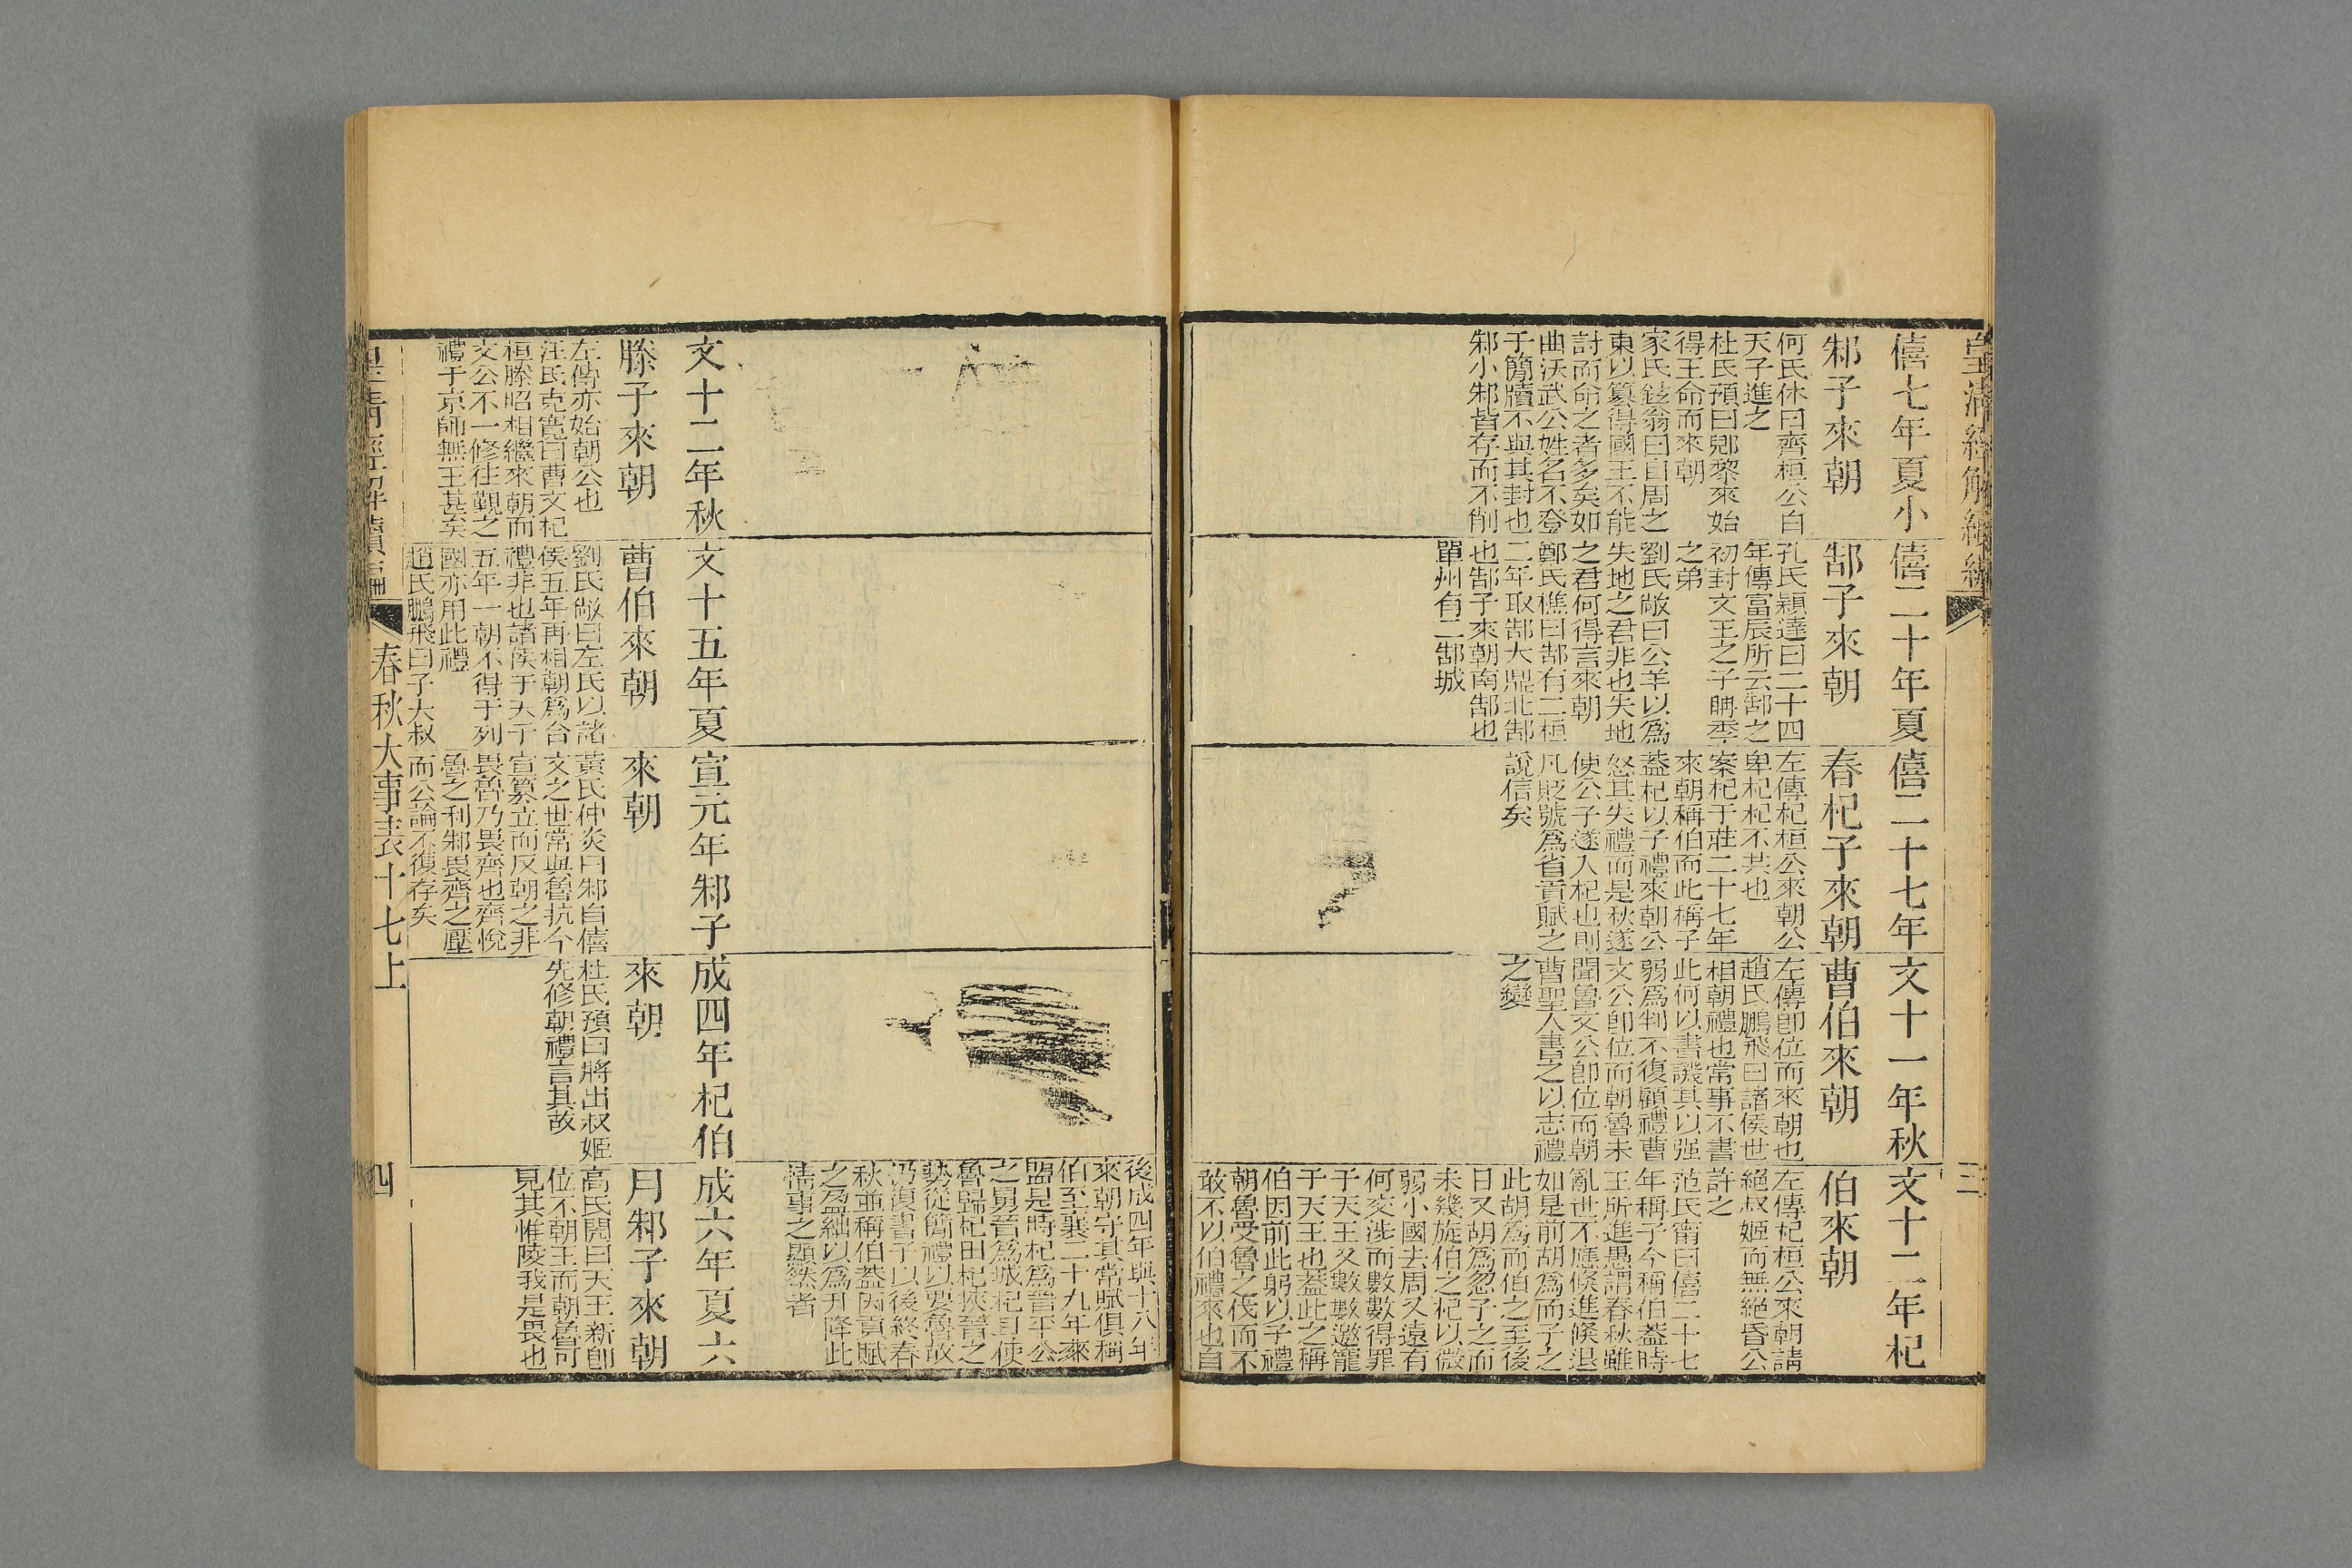 皇清經解續編
三
僖七年夏小
邾子來朝
何氏休曰齊桓公白
天子進之
杜氏預曰郳黎來始
得王命而來朝
家氏鉉翁曰自周之
東以簒得國王不能
討而命之者多矣如
曲沃武公姓名不登
于簡牘不與其封也
邾小邾皆存而不削
僖二十年夏
郜子來朝
孔氏穎達曰二十四
年傳富辰所云郜之
初封文王之子聃季
之弟
劉氏敞曰公羊以爲
失地之君非也失地
之君何得言來朝
鄭氏樵曰郜有二桓
二年取郜大鼎北郜
也郜子來朝南郜也
單州有二郜城
僖二十七年
春杞子來朝
左傳杞桓公來朝公
卑杞杞不共也
案杞于莊二十七年
來朝稱伯而此稱子
蓋杞以子禮來朝公
怒其失禮而是秋遂
使公子遂入杞也則
凡貶號爲省貢賦之
說信矣
文十一年秋
曹伯來朝
左傳卽位而來朝也
趙氏鵬飛曰諸侯世
相朝禮也常事不書
此何以書譏其以强
弱爲判不復顧禮曹
文公卽位而朝魯未
聞魯文公卽位而朝
曹聖人書之以志禮
之變
文十二年杞
伯來朝
左傳杞桓公來朝請
絕叔姬而無絕昏公
許之
范氏甯曰僖二十七
年稱子今稱伯蓋時
王所進愚謂春秋雖
亂世不應倏進倏退
如是前胡爲而子之
此胡爲而伯之至後
日又胡爲忽子之而
未幾旋伯之杞以微
弱小國去周又遠有
何交涉而數數得罪
于天王又數數邀寵
于天王也蓋此之稱
伯因前此躬以子禮
朝魯受魯之伐而不
敢不以伯禮來也自
後成四年與十八年
來朝守其常賦俱稱
伯至襄二十九年來
盟是時杞爲晉平公
之舅晉爲城杞且使
魯歸杞田杞挾晉之
勢從簡禮以要魯故
仍復書子以後終春
秋並稱伯蓋因貢賦
之盈絀以爲升降此
情事之顯然者
文十二年秋
滕子來朝
左傳亦始朝公也
汪氏克寬曰曹文杞
桓滕昭相繼來朝而
文公不一修往覲之
禮于京師無王甚矣
文十五年夏
曹伯來朝
劉氏敞曰左氏以諸
侯五年再相朝爲合
禮非也諸侯于天子
五年一朝不得于列
國亦用此禮
趙氏鵬飛曰子大叔
宣元年邾子
來朝
黃氏仲炎曰邾自僖
文之世常與魯抗今
宣簒立而反朝之非
畏魯乃畏齊也齊悅
魯之利邾畏齊之壓
而公論不復存矣
成四年杞伯
來朝
杜氏預曰將出叔姬
先修朝禮言其故
成六年夏六
月邾子來朝
高氏閌曰天王新卽
位不朝王而朝魯可
見其惟陵我是畏也
皇清經解續編
春秋大事表十七上
四